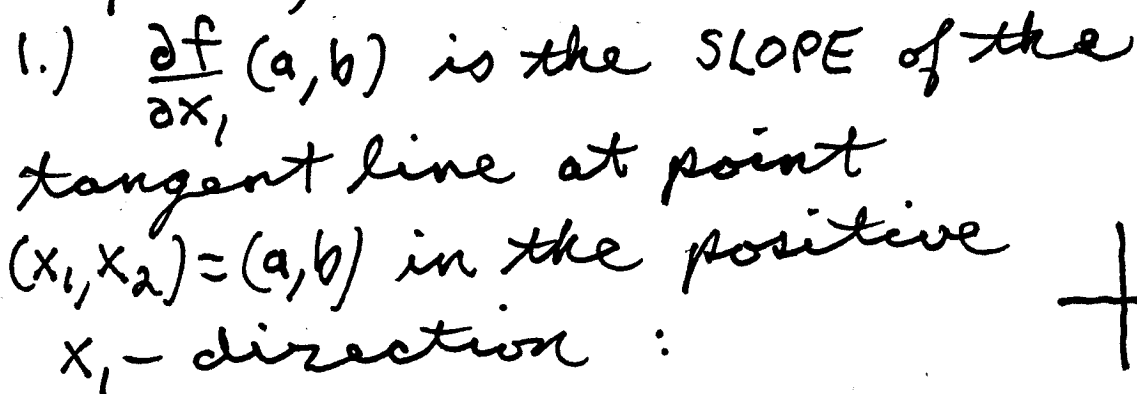 1.) ∂f/∂x₁ (a,b) is the SLOPE of the
tangent line at point
(x₁,x₂)=(a,b) in the positive
x₁-direction :